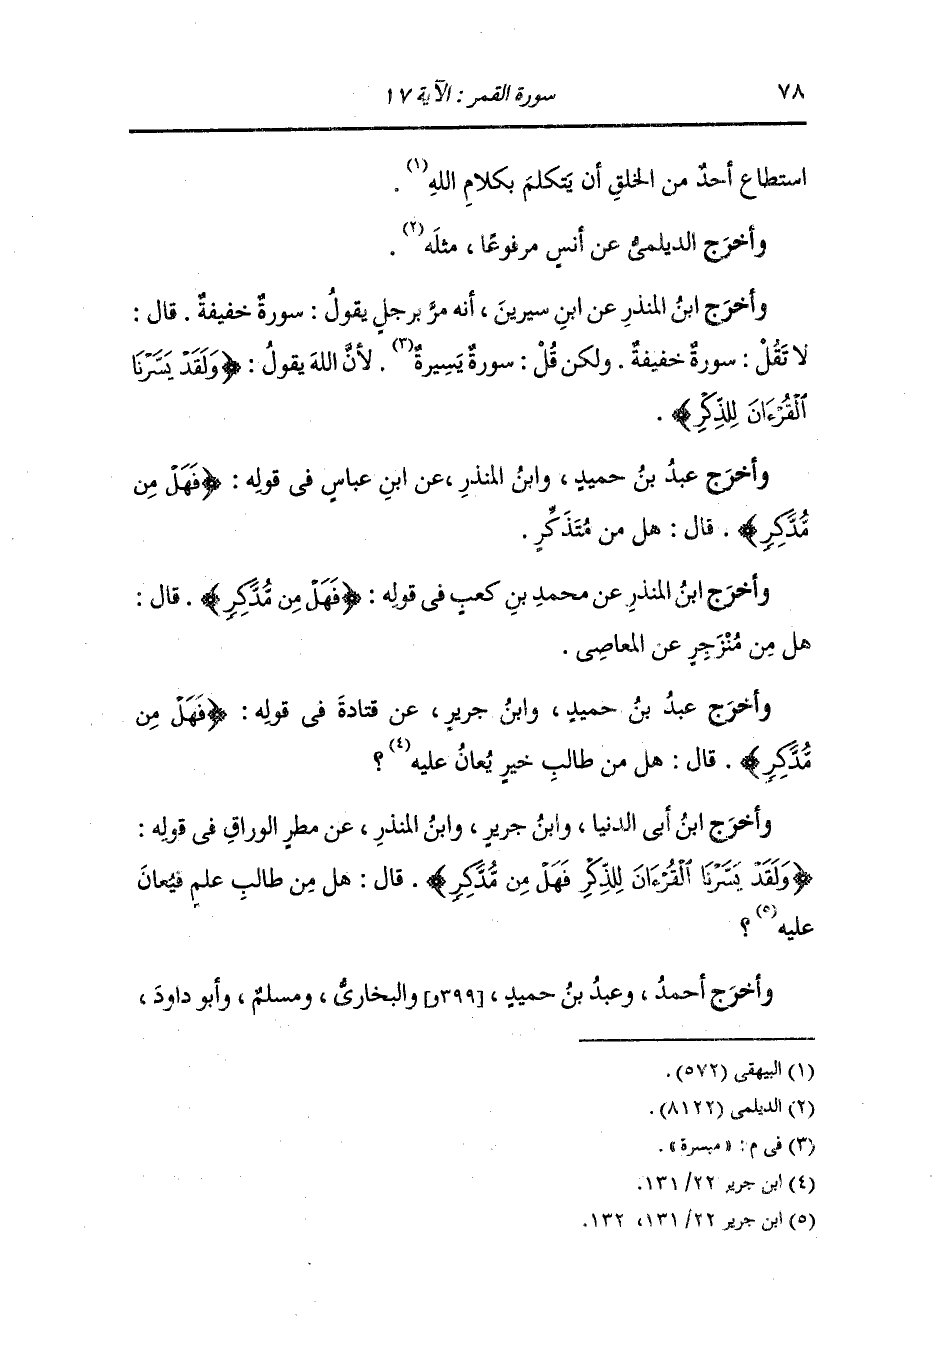 ٧٨
سورة القمر : الآية ١٧
استطاع أحدٌ من الخلقِ أن يَتكلمَ بكلامِ اللهِ(١) .
وأخرَج الديلمىُّ عن أنسٍ مرفوعًا ، مثلَه(٢) .
وأخرَج ابنُ المنذرِ عن ابنِ سيرينَ ، أنه مرَّ برجلٍ يقولُ : سورةٌ خفيفةٌ . قال :
لا تَقُلْ : سورةٌ خفيفةٌ . ولكن قُلْ : سورةٌ يَسِيرةٌ(٣) . لأنَّ اللهَ يقولُ : ﴿وَلَقَدْ يَسَّرْنَا
ٱلْقُرْءَانَ لِلذِّكْرِ﴾ .
وأخرَج عبدُ بنُ حميدٍ ، وابنُ المنذرِ ،عن ابنِ عباسٍ فى قولِه : ﴿فَهَلْ مِن
مُّدَّكِرٍ﴾ . قال : هل من مُتَذَكِّرٍ .
وأخرَج ابنُ المنذرِ عن محمدِ بنِ كعبٍ فى قولِه : ﴿فَهَلْ مِن مُّدَّكِرٍ﴾ . قال :
هل مِن مُنْزَجِرٍ عن المعاصِى .
وأخرَج عبدُ بنُ حميدٍ ، وابنُ جريرٍ ، عن قتادةَ فى قولِه : ﴿فَهَلْ مِن
مُّدَّكِرٍ﴾ . قال : هل من طالبِ خيرٍ يُعانُ عليه(٤) ؟
وأخرَج ابنُ أبى الدنيا ، وابنُ جريرٍ ، وابنُ المنذرِ ، عن مطرٍ الوراقِ فى قولِه :
﴿وَلَقَدْ يَسَّرْنَا ٱلْقُرْءَانَ لِلذِّكْرِ فَهَلْ مِن مُّدَّكِرٍ﴾ . قال : هل مِن طالبِ علمٍ فيُعانَ
عليه(٥) ؟
وأخرَج أحمدُ ، وعبدُ بنُ حميدٍ ، [٣٩٩و] والبخارىُّ ، ومسلمٌ ، وأبو داودَ ،
(١) البيهقى (٥٧٢) .
(٢) الديلمى (٨١٢٢) .
(٣) فى م : « ميسرة » .
(٤) ابن جرير ٢٢/ ١٣١.
(٥) ابن جرير ٢٢/ ١٣١، ١٣٢.